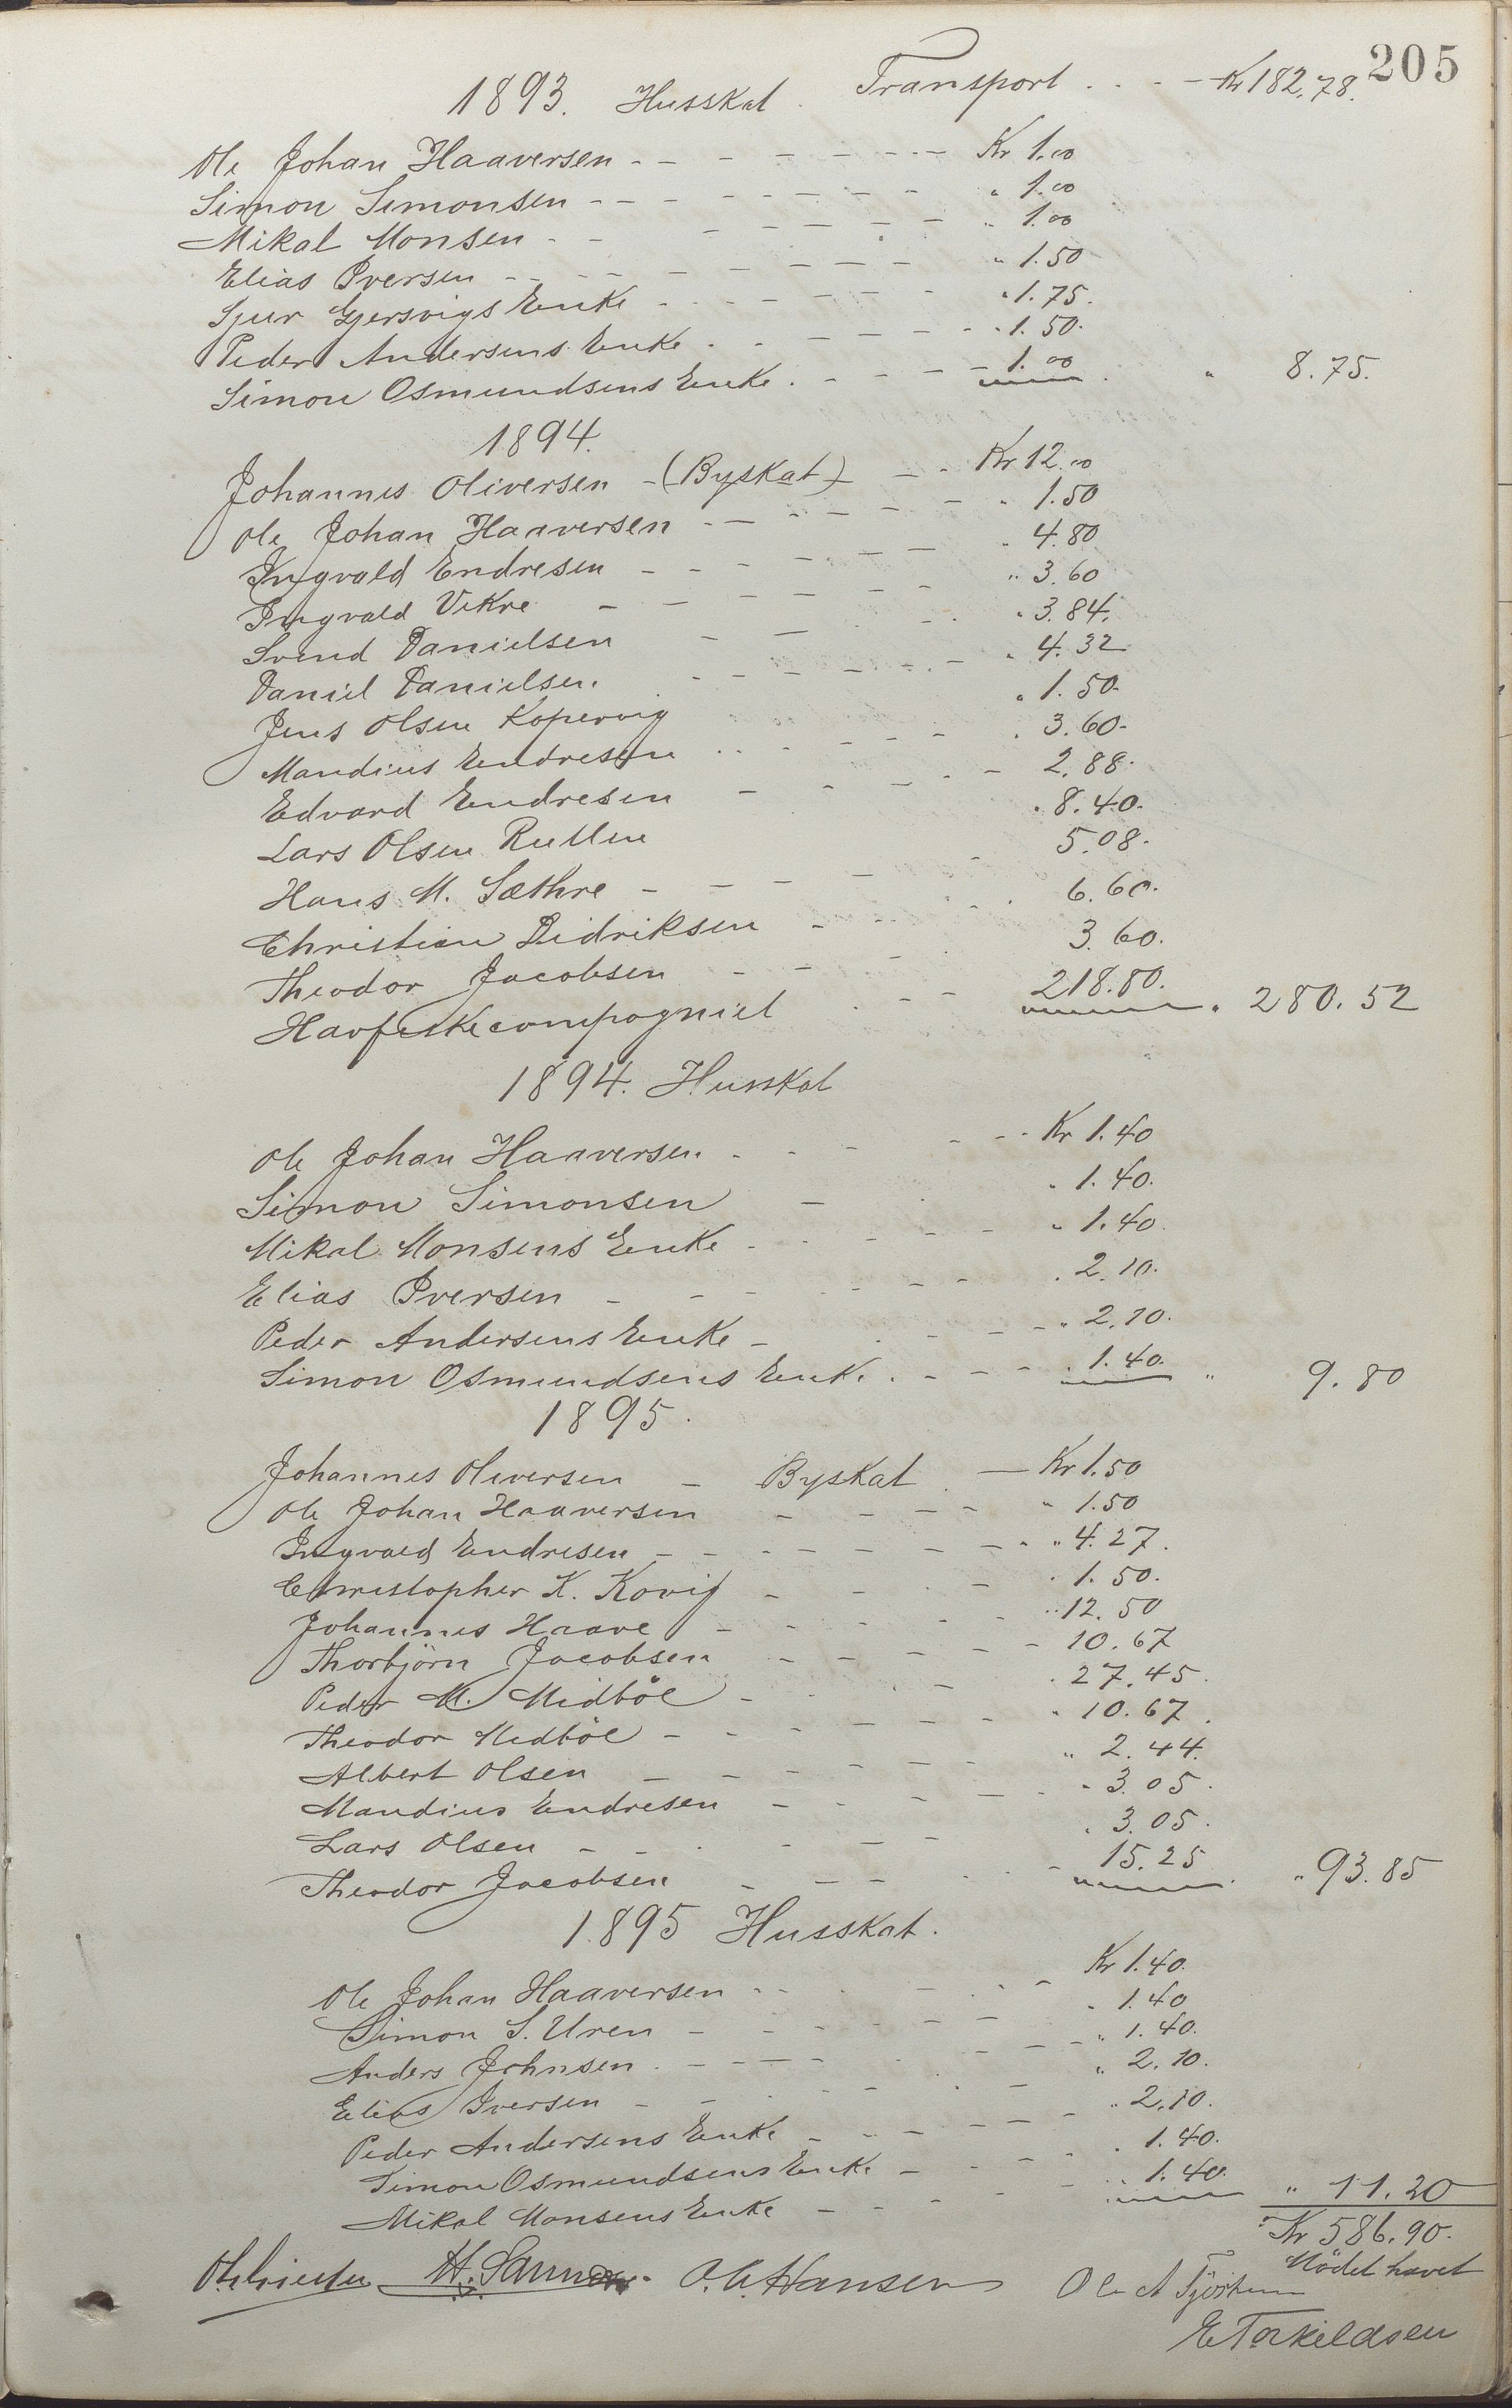 205
1893. Husskat. Transport . . . Kr 182.78.
Ole Johan Haaversen - - - Kr 1.00
Simon Simonsen - - - " 1.00
Mikal Monsen - - - " 1.00
Elias Iversen - - - " 1.50
Sjur Gjersvigs Enke - - - " 1.75.
Peder Andersens Enke - - - " 1.50.
Simon Osmundsens Enke - - - 1.00 " 8.75.
1894.
Johannes Oliversen - (Byskat) - - Kr 12.00
Ole Johan Haaversen - - - " 1.50
Ingvald Endresen - - - " 4.80
Ingvald Vikre - - - " 3.60
Svend Danielsen - - - " 3.84.
Daniel Danielsen - - - " 4.32
Jens Olsen Kopervig - - - " 1.50.
Mandius Endresen - - - " 3.60.
Edvard Endresen - - - 2.88.
Lars Olsen " 8.40.
Hans M. Sæthre - - - 5.08.
Christian Didriksen - - - 6.60.
Theodor Jacobsen - - - 3.60.
Havfiskecompagniet - - - 218.80. " 280.52
1894. Husskat
Ole Johan Haaversen - - - Kr 1.40
Simon Simonsen - - " 1.40.
Mikal Monsens Enke - - - " 1.40.
Elias Iversen - - - " 2.10.
Peder Andersens Enke - - - " 2.10.
Simon Osmundsens Enke - - - " 1.40. " 9.80
1895.
Johannes Oliversen - Byskat - Kr 1.50
Ole Johan Haaversen - - - " 1.50
Ingvald Endresen - - - " 4.27.
Christopher K. - - - " 1.50.
Johannes Haave - - - " 12.50
Thorbjörn Jacobsen - - - 10.67
Peder M. Midböe - - - " 27.45.
Theodor Midböe - - - " 10.67.
Albert Olsen - - - " 2.44.
Mandius Endresen - - - " 3.05.
Lars Olsen - - - " 3.05.
Theodor Jacobsen - - - 15.25 " 93.85
1895 Husskat.
Ole Johan Haaversen - - - Kr 1.40.
Simon S. Uren - - - " 1.40
Anders Johnsen - - - " 1.40.
Elias Iversen - - - " 2.10.
Peder Andersens Enke - - - " 2.10.
Simon Osmundsens Enke - - - " 1.40.
Mikal Monsens Enke - - - " 1.40. " 11.20
Kr 586.90.
Mödet hævet
O. C. Hansen Ole A
E Torkildsen